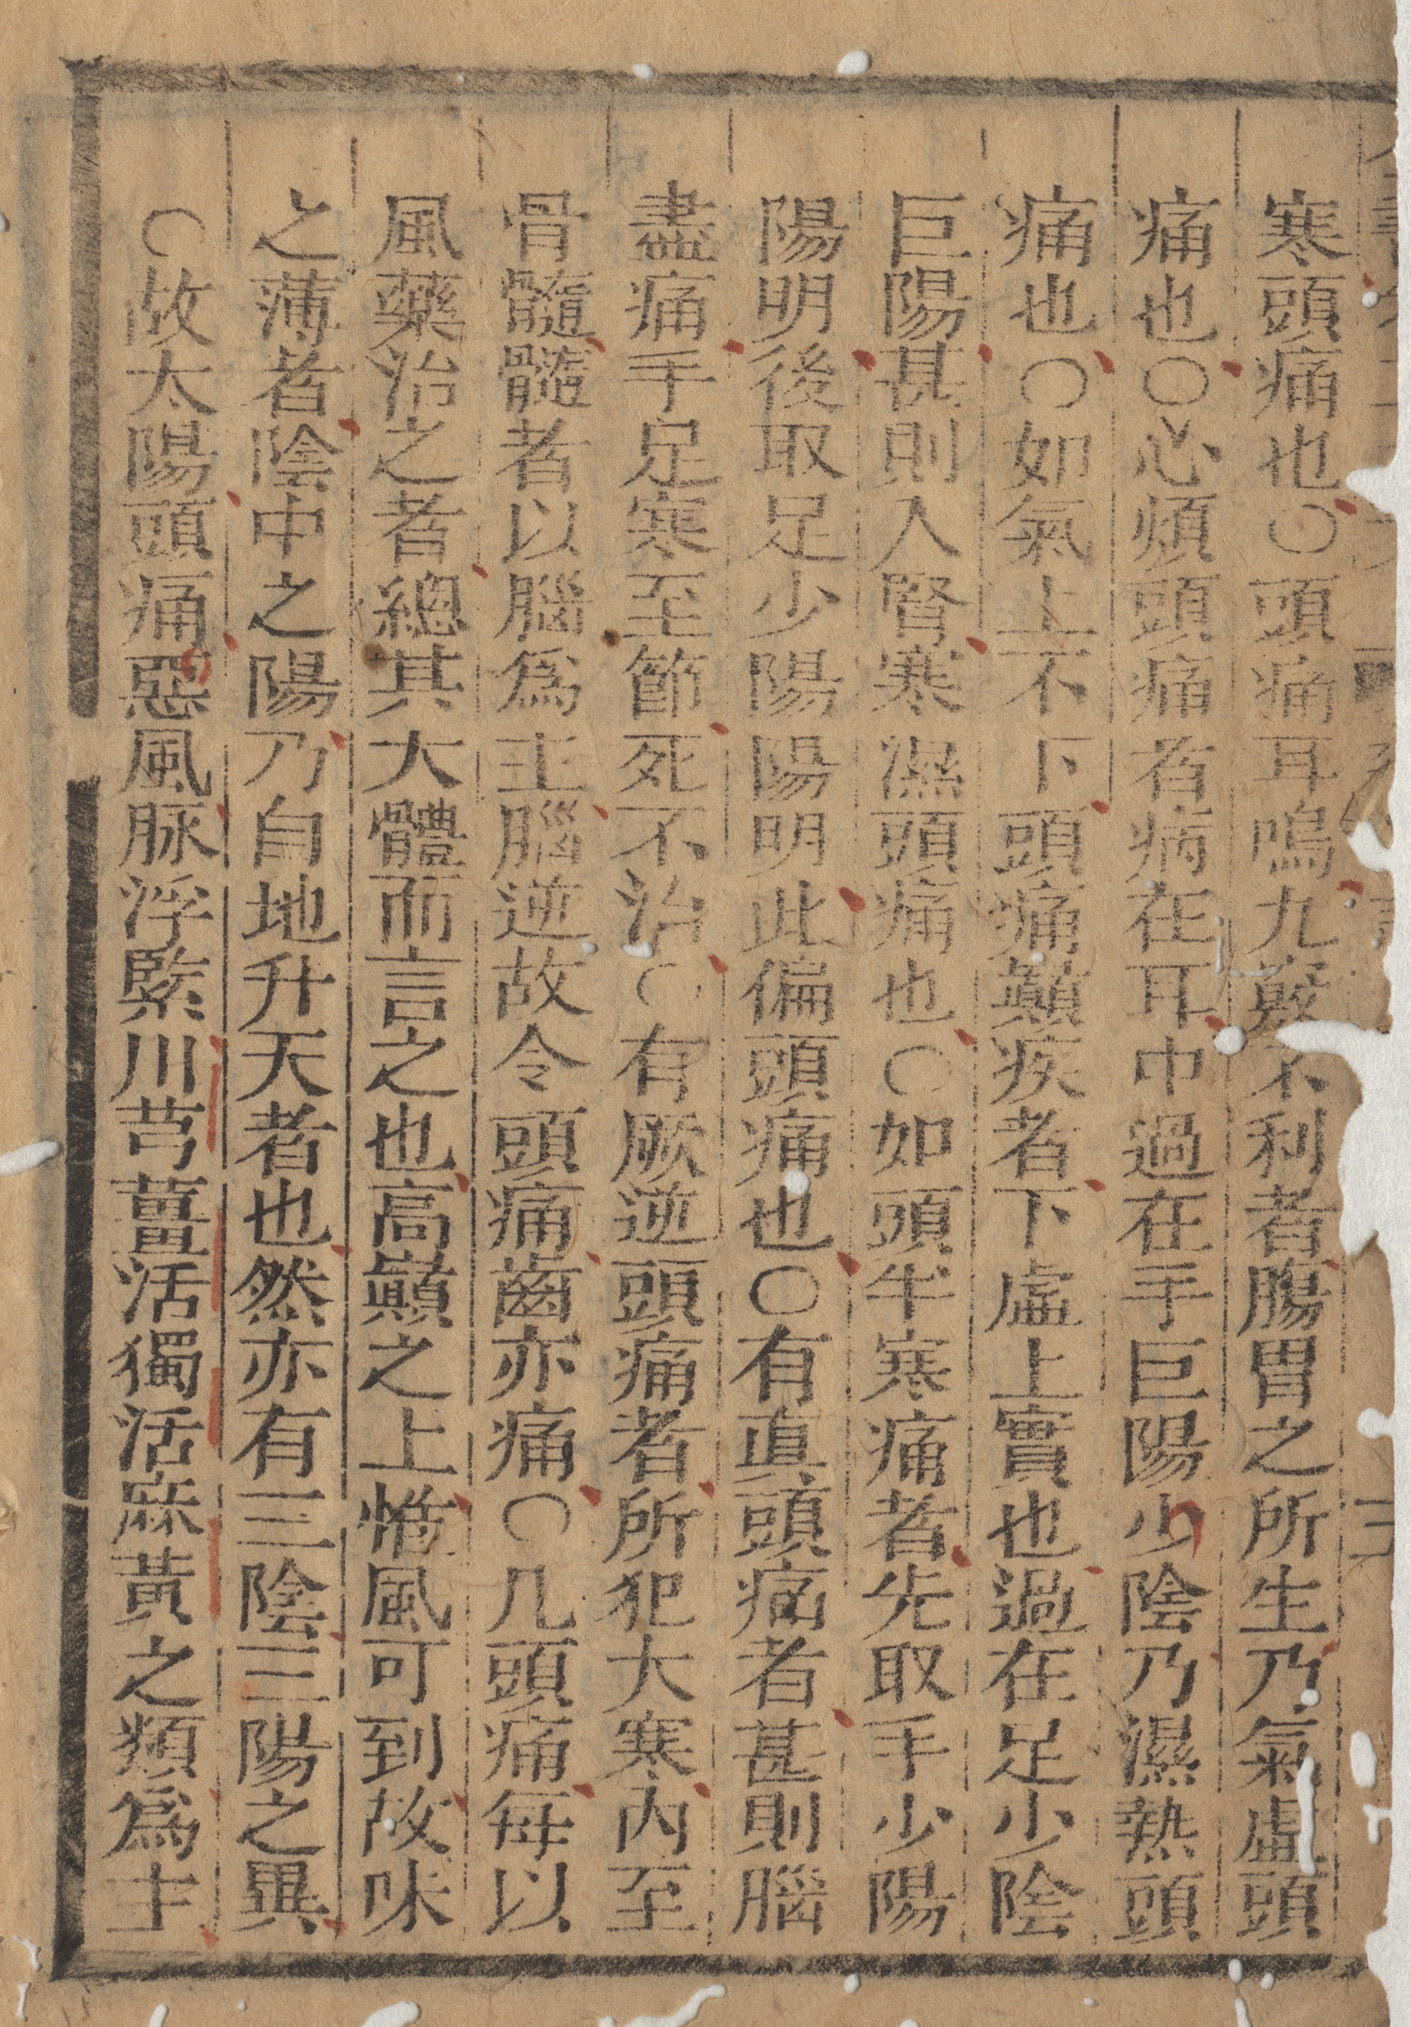 寒頭痛也○頭痛耳鳴九竅不利者腸胃之所生乃氣虛頭
痛也○心煩頭痛者病在耳中過在手巨陽少陰乃濕熱頭
痛也○如氣上不下頭痛巔疾者下虛上實也過在足少陰
巨陽甚則入腎寒濕頭痛也○如頭半寒痛者先取手少陽
陽明後取足少陽陽明此偏頭痛也○有直頭痛者甚則腦
盡痛手足寒至節死不治○有厥逆頭痛者所犯大寒內至
骨髓髓者以腦爲主腦逆故令頭痛齒亦痛○凡頭痛每以
風藥治之者總其大體而言之也高巔之上惟風可到故味
之薄者陰中之陽乃自地升天者也然亦有三陰三陽之異
○故太陽頭痛惡風脉浮緊川芎薑活獨活麻黃之類爲主